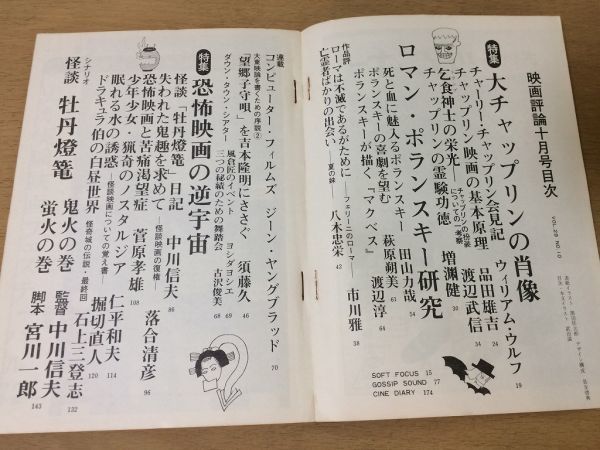 映画評論十月号目次
VOL.29 NO.10
特集 大チャップリンの肖像
チャーリー・チャップリン会見記 ウィリアム・ウルフ 19
チャップリン映画の基本原理 品田雄吉 24
乞食紳士の栄光 チャップリンの恐妻についての一考察 渡辺武信 34
チャップリンの霊験功徳 増淵健 30
ロマン・ポランスキー研究
死と血に魅入るポランスキー 田山力哉 54
ポランスキーの喜劇を望む 萩原朔美 63
ポランスキーが描く『マクベス』 渡辺淳 64
作品評
ローマは不滅であるがために フェリーニのローマ 市川雅 38
亡霊者ばかりの出会い 夏の妹 八木忠栄 42
SOFT FOCUS 15
GOSSIP SOUND 77
CINE DIARY 174
連載
コンピューター・フィルムズ ジーン・ヤングブラッド 70
大東映論を書くための序説②
「望郷子守唄」を吉本隆明にささぐ 須藤久 46
ダウン・タウン・シアター
風倉匠のイベント ヨシダヨシエ 69
三つの秘蹟のための舞踏会 古沢俊美 68
特集 恐怖映画の逆宇宙
怪談「牡丹燈篭」日記 中川信夫 86
失われた鬼趣を求めて 怪談映画の復権 落合清彦 96
恐怖映画と苦痛渇望症 菅原孝雄 108
少年少女・猟奇のノスタルジア 仁平和夫 114
眠れる水の誘惑 怪談映画についての覚え書 堀切直人 120
ドラキュラ伯の白昼世界 怪奇城の伝説・最終回 石上三登志 132
シナリオ
怪談 牡丹燈篭 鬼火の巻 蛍火の巻 監督 中川信夫 脚本 宮川一郎 143